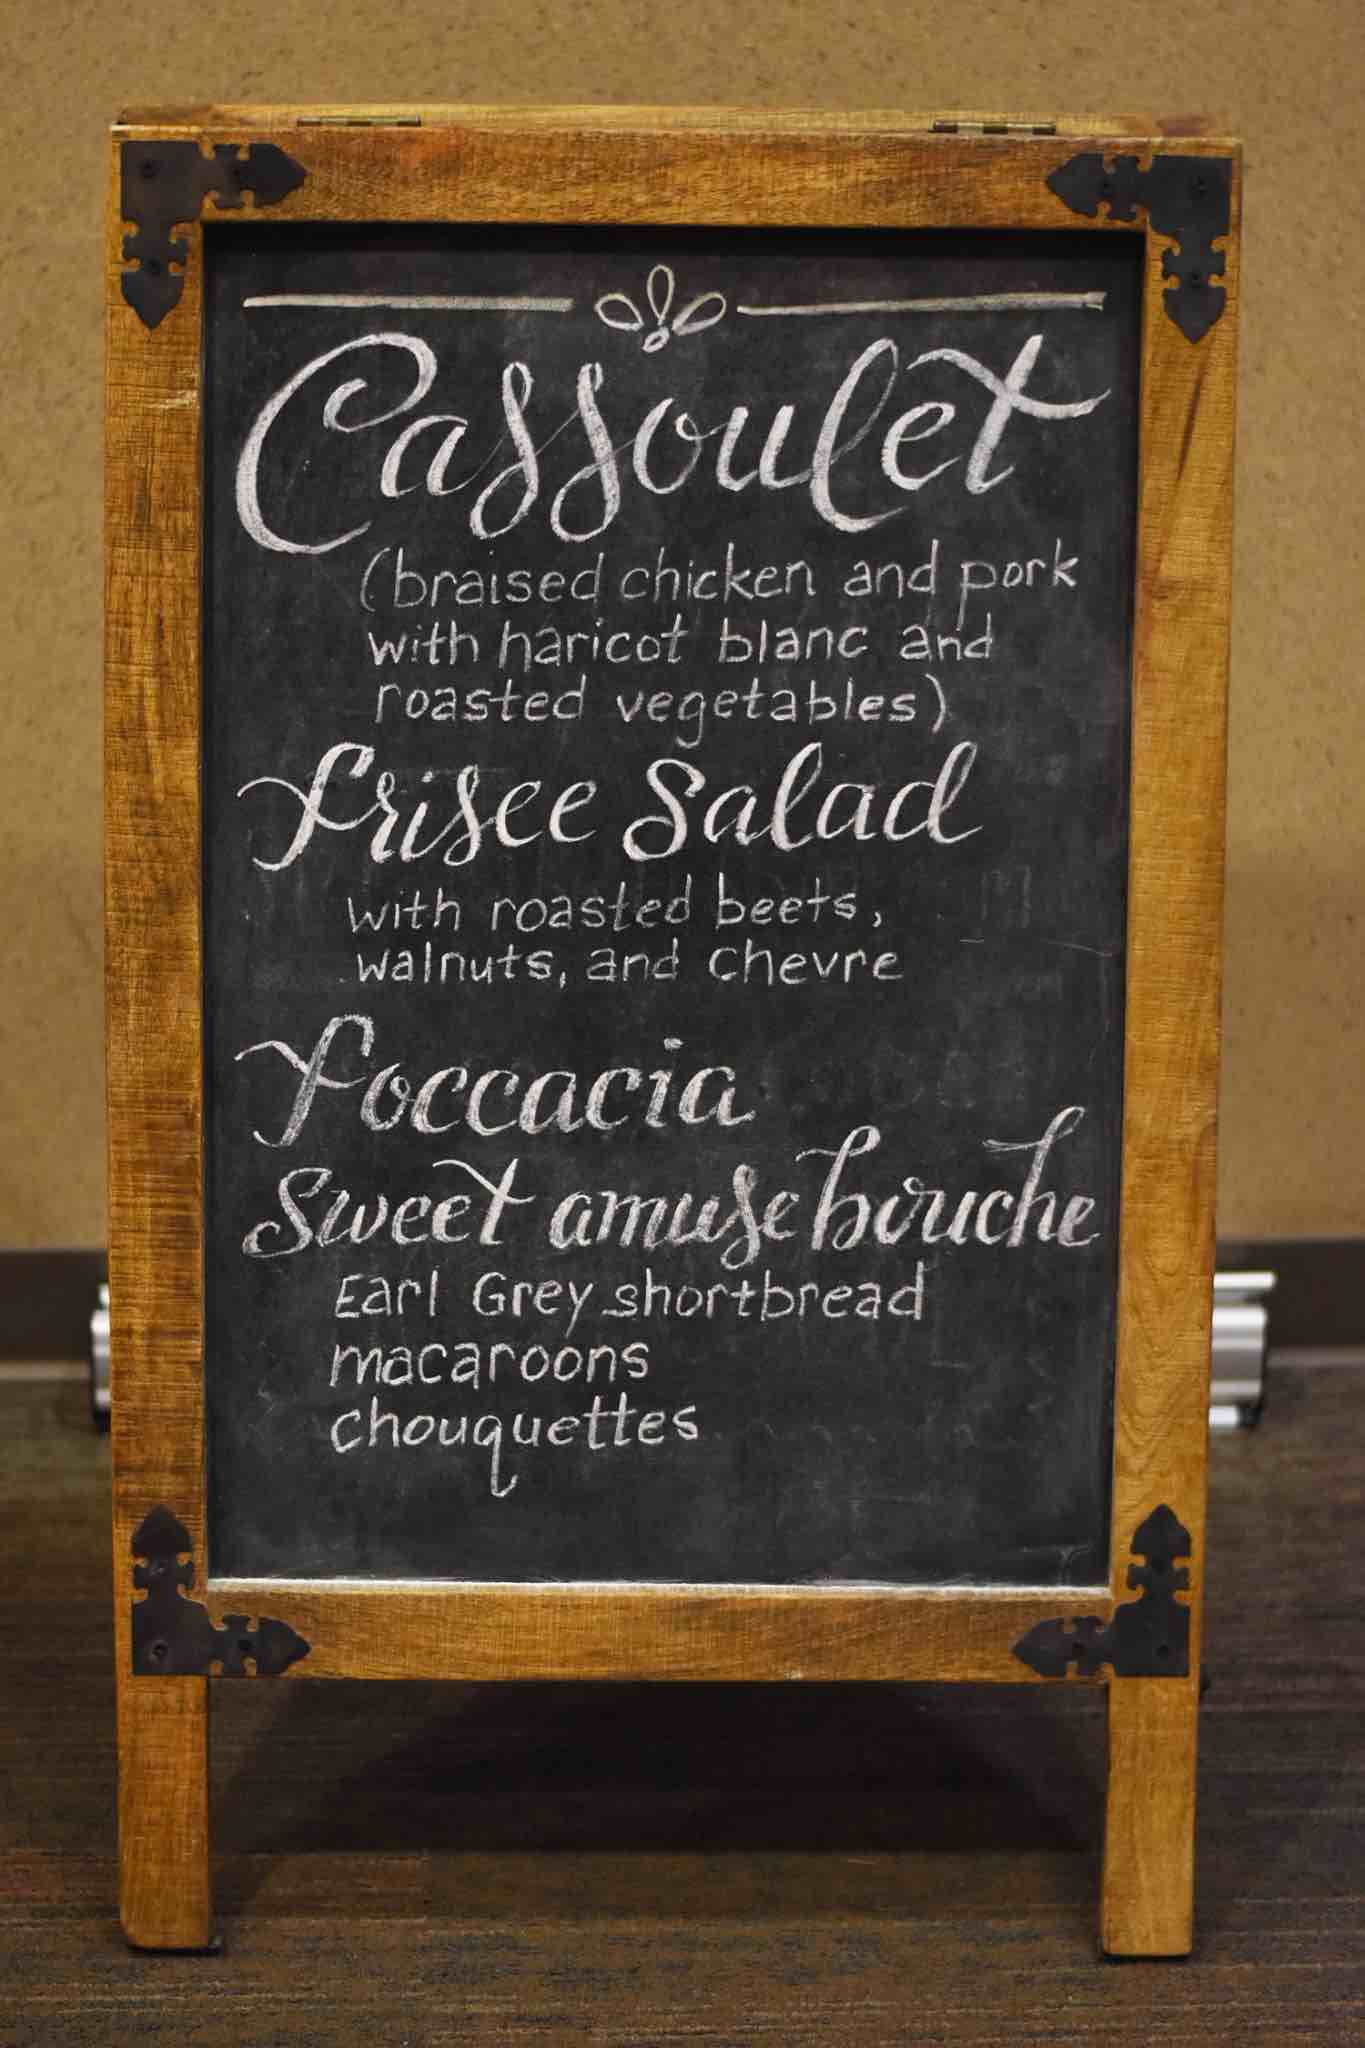 Cassoulet
(braised chicken and pork
with haricot blanc and
roasted vegetables)
Frisee Salad
with roasted beets,
walnuts, and chevre
Foccacia
Sweet amuse bouche
Earl Grey shortbread
macaroons
chouquettes